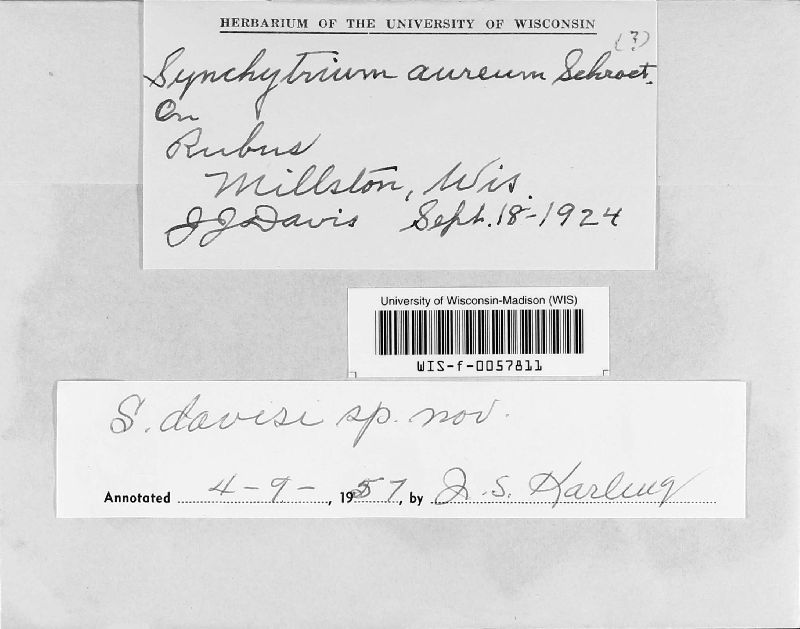 HERBARIUM OF THE UNIVERSITY OF WISCONSIN
(?)
Synchytrium aureum Schroet.
On
Rubus
Millston, Wis.
J J Davis Sept. 18-1924
University of Wisconsin-Madison (WIS)
WIS-f-0057811
S. davisi sp. nov.
Annotated 4-9-, 1957, by J. S. Karling